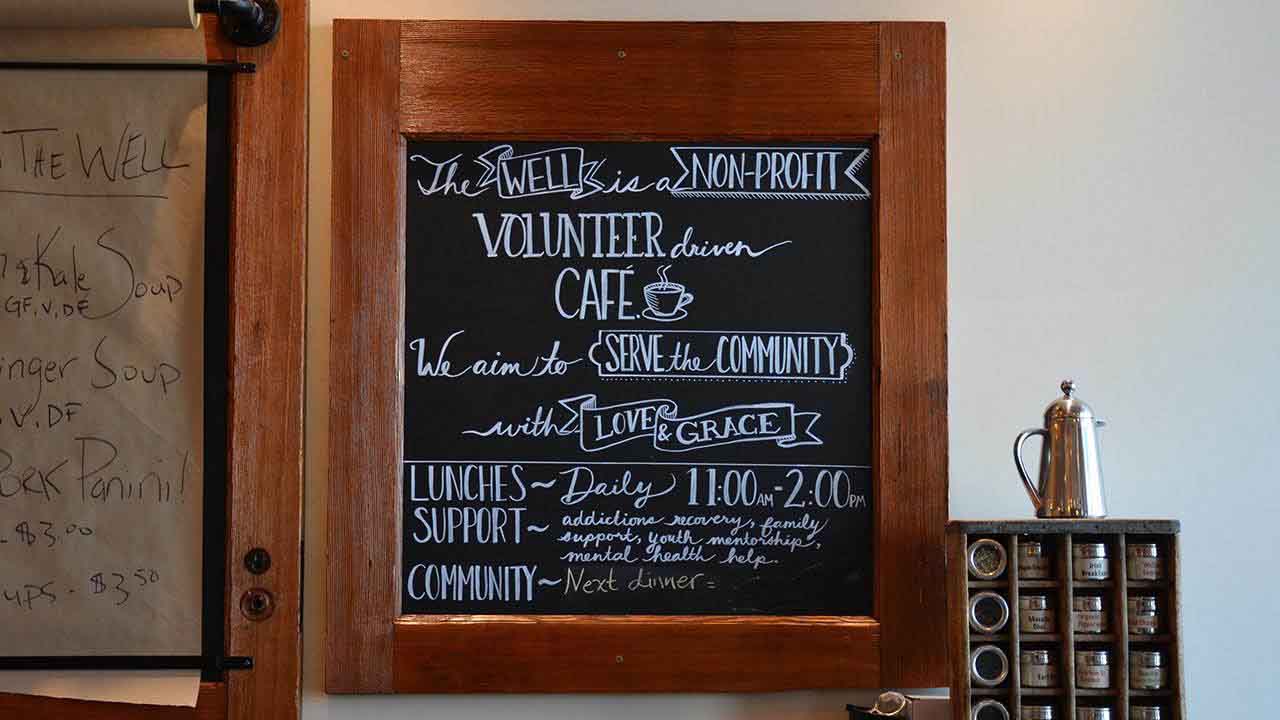 THE WELL
& Kale Soup
GF, V, DF
Soup
V, DF
Pork Panini!
$3.00
$3.50
The WELL is a NON-PROFIT
VOLUNTEER driven
CAFÉ.
We aim to SERVE the COMMUNITY
with LOVE & GRACE
LUNCHES ~ Daily 11:00AM - 2:00PM
SUPPORT ~ addictions recovery, family
support, youth mentorship,
mental health help.
COMMUNITY ~ Next dinner =
Irish
Breakfast